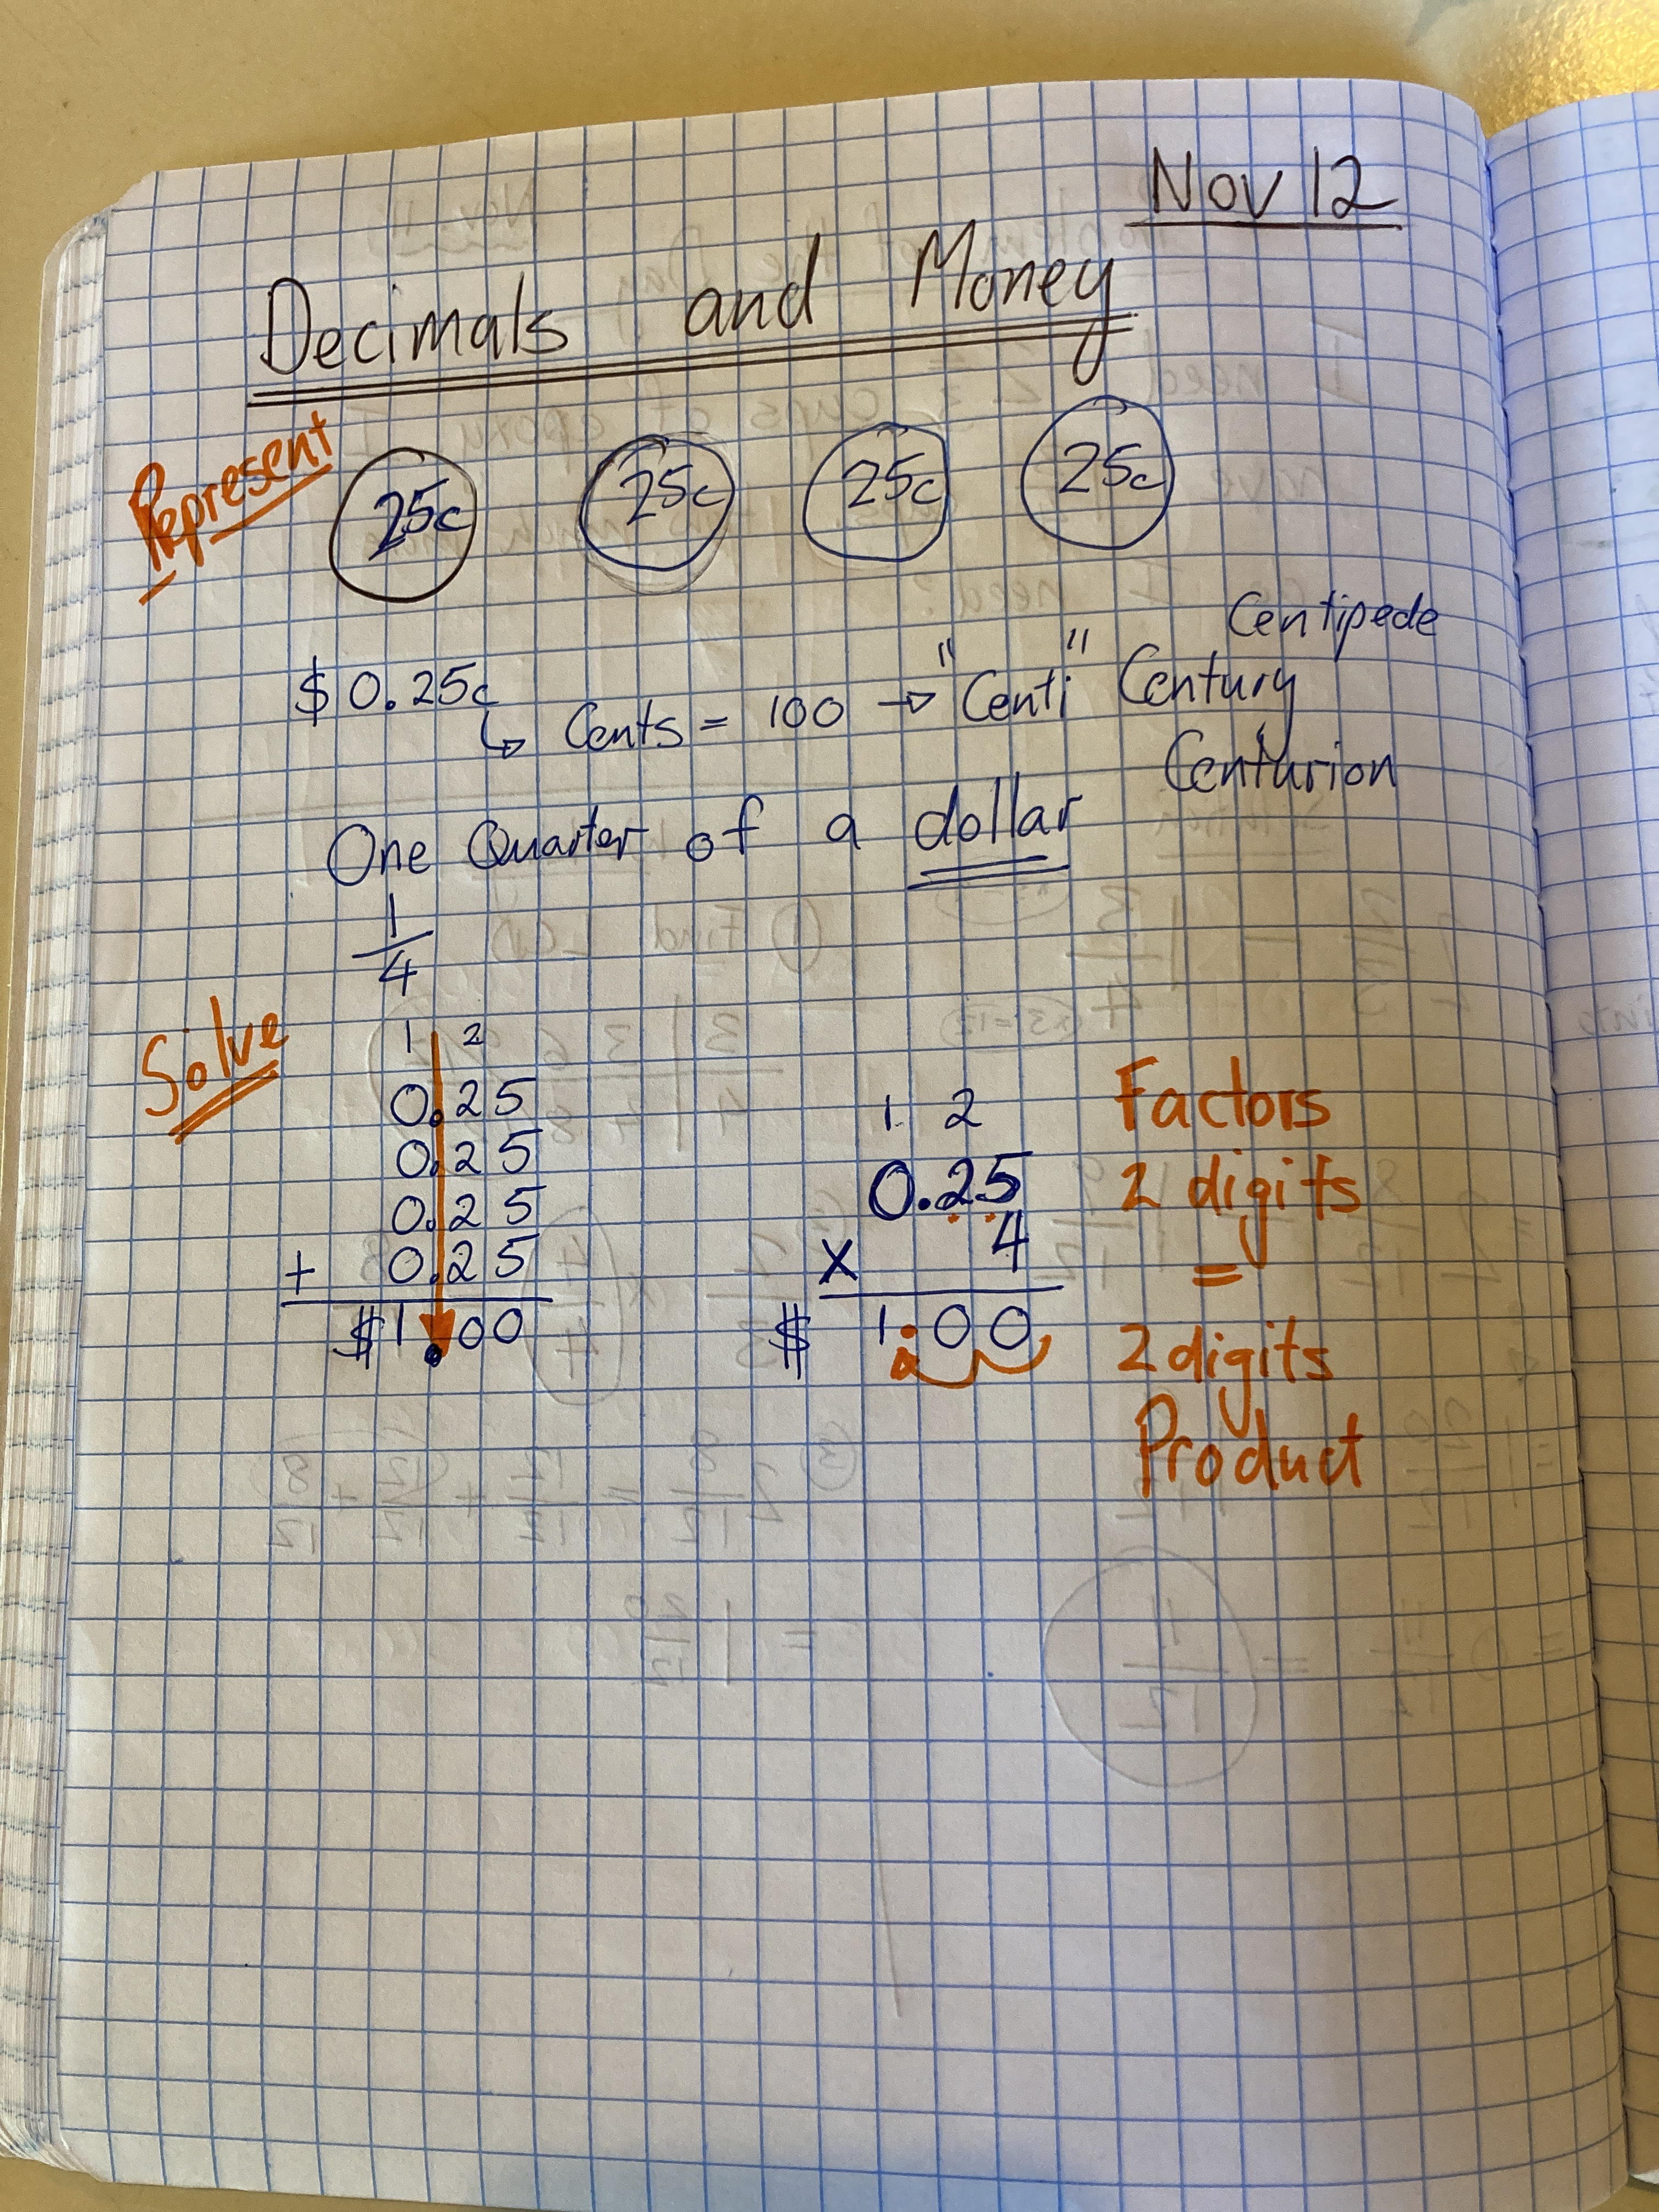 Nov 12
Decimals and Money
Represent
25c 25c 25c 25c
Centipede
$0.25c
↳ Cents = 100 → "Centi" Century
Centurion
One Quarter of a dollar
1/4
Solve
1 2
0.25
0.25
0.25
+ 0.25
$1.00
1 2
0.25
x 4
$ 1.00
Factors
2 digits
=
2 digits
Product